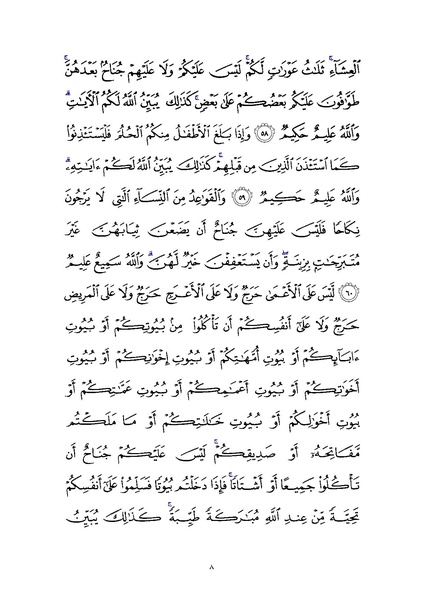 ٱلْعِشَآءِۚ ثَلَٰثُ عَوْرَٰتٍ لَّكُمْۚ لَيْسَ عَلَيْكُمْ وَلَا عَلَيْهِمْ جُنَاحٌۢ بَعْدَهُنَّۚ
طَوَّٰفُونَ عَلَيْكُم بَعْضُكُمْ عَلَىٰ بَعْضٍۚ كَذَٰلِكَ يُبَيِّنُ ٱللَّهُ لَكُمُ ٱلْءَايَٰتِۗ
وَٱللَّهُ عَلِيمٌ حَكِيمٌ ٥٨ وَإِذَا بَلَغَ ٱلْأَطْفَٰلُ مِنكُمُ ٱلْحُلُمَ فَلْيَسْتَـْٔذِنُوا۟
كَمَا ٱسْتَـْٔذَنَ ٱلَّذِينَ مِن قَبْلِهِمْۚ كَذَٰلِكَ يُبَيِّنُ ٱللَّهُ لَكُمْ ءَايَٰتِهِۦۗ
وَٱللَّهُ عَلِيمٌ حَكِيمٌ ٥٩ وَٱلْقَوَٰعِدُ مِنَ ٱلنِّسَآءِ ٱلَّٰتِى لَا يَرْجُونَ
نِكَاحًا فَلَيْسَ عَلَيْهِنَّ جُنَاحٌ أَن يَضَعْنَ ثِيَابَهُنَّ غَيْرَ
مُتَبَرِّجَٰتٍۭ بِزِينَةٍۖ وَأَن يَسْتَعْفِفْنَ خَيْرٌ لَّهُنَّۗ وَٱللَّهُ سَمِيعٌ عَلِيمٌ
٦٠ لَّيْسَ عَلَى ٱلْأَعْمَىٰ حَرَجٌ وَلَا عَلَى ٱلْأَعْرَجِ حَرَجٌ وَلَا عَلَى ٱلْمَرِيضِ
حَرَجٌ وَلَا عَلَىٰٓ أَنفُسِكُمْ أَن تَأْكُلُوا۟ مِنۢ بُيُوتِكُمْ أَوْ بُيُوتِ
ءَابَآئِكُمْ أَوْ بُيُوتِ أُمَّهَٰتِكُمْ أَوْ بُيُوتِ إِخْوَٰنِكُمْ أَوْ بُيُوتِ
أَخَوَٰتِكُمْ أَوْ بُيُوتِ أَعْمَٰمِكُمْ أَوْ بُيُوتِ عَمَّٰتِكُمْ أَوْ
بُيُوتِ أَخْوَٰلِكُمْ أَوْ بُيُوتِ خَٰلَٰتِكُمْ أَوْ مَا مَلَكْتُم
مَّفَاتِحَهُۥٓ أَوْ صَدِيقِكُمْۚ لَيْسَ عَلَيْكُمْ جُنَاحٌ أَن
تَأْكُلُوا۟ جَمِيعًا أَوْ أَشْتَاتًاۚ فَإِذَا دَخَلْتُم بُيُوتًا فَسَلِّمُوا۟ عَلَىٰٓ أَنفُسِكُمْ
تَحِيَّةً مِّنْ عِندِ ٱللَّهِ مُبَٰرَكَةً طَيِّبَةًۚ كَذَٰلِكَ يُبَيِّنُ
٨